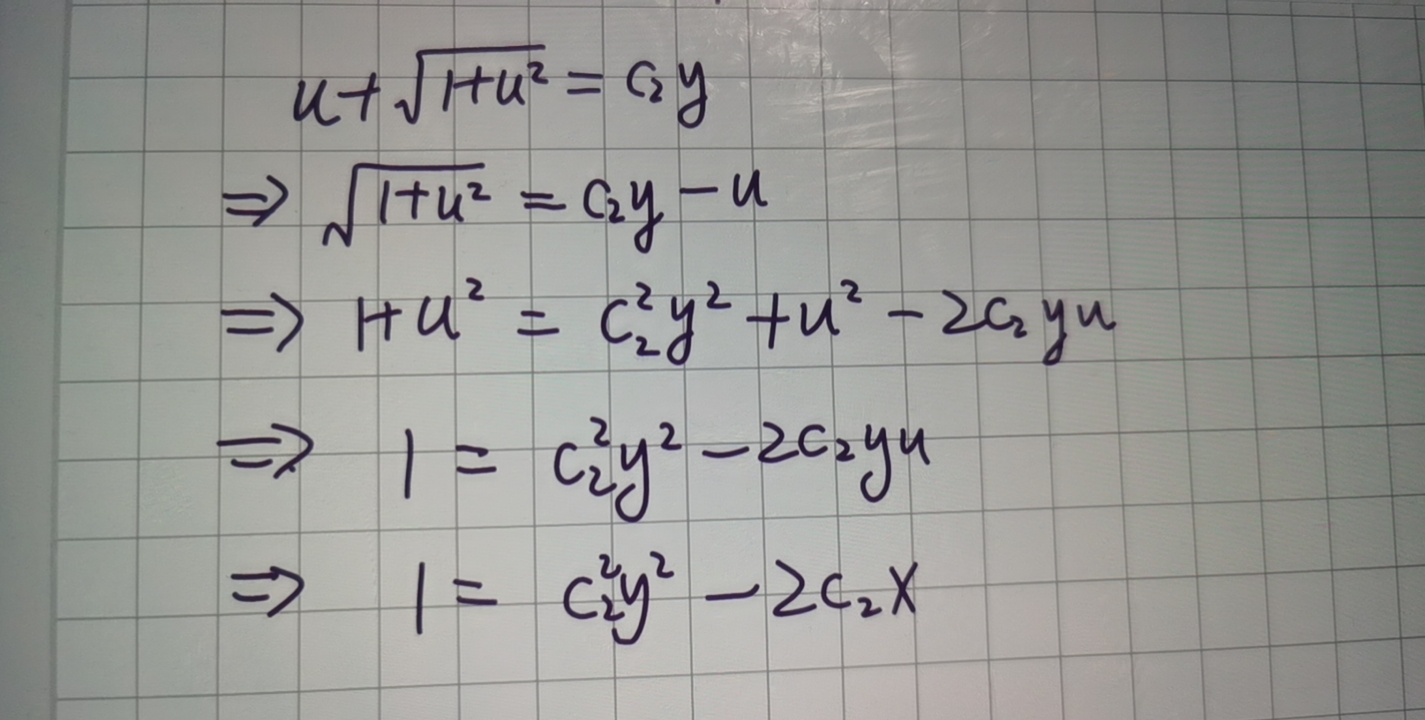 u+√(1+u²) = c₂y
⇒ √(1+u²) = c₂y − u
⇒ 1+u² = c₂²y² + u² − 2c₂yu
⇒ 1 = c₂²y² − 2c₂yu
⇒ 1 = c₂²y² − 2c₂x